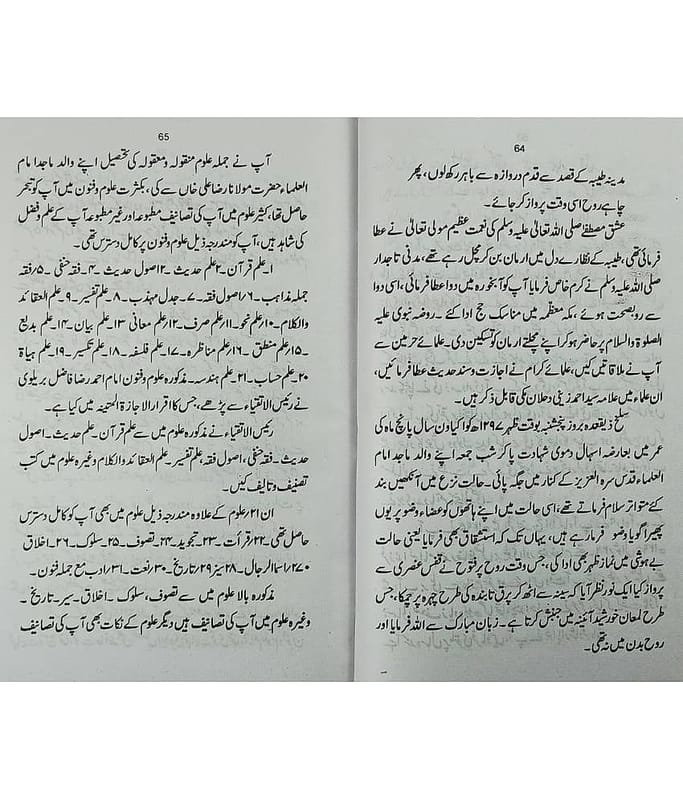 64
مدینہ طیبہ کے قصد سے قدم دروازہ سے باہر رکھ لوں، پھر
چاہے روح اسی وقت پرواز کر جائے۔
عشق مصطفےٰ صلی اللہ تعالیٰ علیہ وسلم کی نعمت عظیم مولیٰ تعالیٰ نے عطا
فرمائی تھی، طیبہ کے نظارے دل میں ارمان بن کر مچل رہے تھے، مدنی تاجدار
صلی اللہ علیہ وسلم نے کرم خاص فرمایا آپ کو آبخورہ میں دوا عطا فرمائی، اسی دوا
سے روبصحت ہوئے، مکہ معظمہ میں مناسک حج ادا کئے۔ روضہ نبوی علیہ
الصلوۃ والسلام پر حاضر ہو کر اپنے مچلتے ارمان کو تسکین دی۔ علمائے حرمین سے
آپ نے ملاقاتیں کیں، علمائے کرام نے اجازت وسند حدیث عطا فرمائیں،
ان علماء میں علامہ سید احمد زینی دحلان کی قابل ذکر ہیں۔
سلخ ذیقعدہ بروز پنجشنبہ بوقت ظہر ۱۲۹۷ھ کو اکیاون سال پانچ ماہ کی
عمر میں بعارضہ اسہال دموی شہادت پا کر شب جمعہ اپنے والد ماجد امام
العلماء قدس سرہ العزیز کے کنار میں جگہ پائی۔ حالت نزع میں آنکھیں بند
کئے متواتر سلام فرماتے تھے، اسی حالت میں اپنے ہاتھوں کو عضاء وضو پر یوں
پھیرا گویا وضو فرما رہے ہیں، یہاں تک کہ استنشاق بھی فرمایا یعنی حالت
بے ہوشی میں نماز ظہر بھی ادا کی، جس وقت روح پر فتوح نے قفس عنصری سے
پرواز کیا ایک نور نظر آیا کہ سینہ سے اٹھ کر برق تابندہ کی طرح چہرہ پر چمکا، جس
طرح لمعان خورشید آئینہ میں جنبش کرتا ہے۔ زبان مبارک سے اللہ فرمایا اور
روح بدن میں نہ تھی۔
65
آپ نے جملہ علوم منقولہ و معقولہ کی تحصیل اپنے والد ماجد امام
العلماء حضرت مولانا رضا علی خاں سے کی، بکثرت علوم وفنون میں آپ کو تبحر
حاصل تھا، کثیر علوم میں آپ کی تصانیف مطبوعہ اور غیر مطبوعہ آپ کے علم وفضل
کی شاہد ہیں، آپ کو مندرجہ ذیل علوم وفنون پر کامل دسترس تھی۔
۱۔ علم قرآن۔ ۲۔ علم حدیث ۳۔ اصول حدیث ۔ ۴۔ فقہ حنفی ۔ ۵/ فقہ
جملہ مذاہب ۔ ۶/ اصول فقہ۔ ۷۔ جدل مہذب ۔ ۸۔ علم تفسیر۔ ۹۔ علم العقائد
والکلام۔ ۱۰/ علم نحو۔ ۱۱/ علم صرف۔ ۱۲/ علم معانی ۱۳۔ علم بیان۔ ۱۴۔ علم بدیع
۔۱۵/ علم منطق ۔ ۱۶/ علم مناظرہ۔ ۱۷۔ علم فلسفہ ۔ ۱۸۔ علم تکسیر ۔ ۱۹۔ علم ہیاۃ
۲۰۔ علم حساب۔ ۲۱۔ علم ہندسہ۔ مذکورہ علوم وفنون امام احمد رضا فاضل بریلوی
نے رئیس الاتقیاء سے پڑھے، جس کا اقرار الاجازۃ المتینہ میں کیا ہے۔
رئیس الاتقیاء نے مذکورہ علوم میں سے علم قرآن۔ علم حدیث۔ اصول
حدیث۔ فقہ حنفی، اصول فقہ، علم تفسیر۔ علم العقائد والکلام وغیرہ علوم میں کتب
تصنیف وتالیف کیں۔
ان ۲۱/ علوم کے علاوہ مندرجہ ذیل علوم میں بھی آپ کو کامل دسترس
حاصل تھی۔ ۲۲/ قرأت ۔ ۲۳۔ تجوید۔ ۲۴۔ تصوف۔ ۲۵۔ سلوک۔ ۲۶۔ اخلاق
۔۲۷/ اسماء الرجال۔ ۲۸/ سیر ۲۹/ تاریخ۔ ۳۰۔ نعت۔ ۳۱/ ادب مع جملہ فنون۔
مذکورہ بالا علوم میں سے تصوف، سلوک ۔ اخلاق۔ سیر۔ تاریخ ۔
وغیرہ علوم میں آپ کی تصانیف ہیں ودیگر علوم کے نکات بھی آپ کی تصانیف